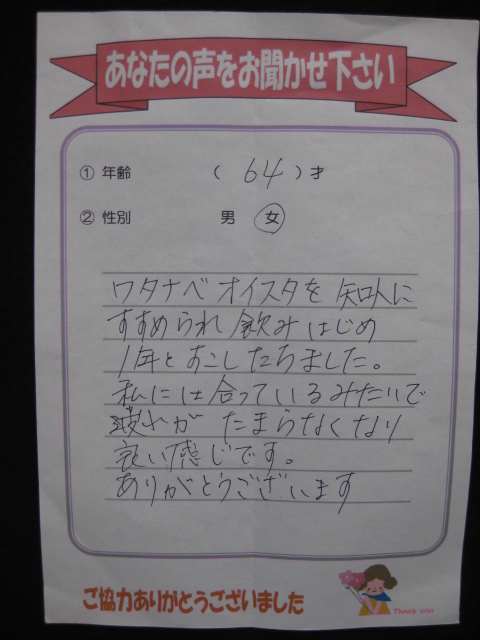 あなたの声をお聞かせ下さい
① 年齢 ( 64 ) 才
② 性別 男 女
ワタナベオイスタを 知人に
すすめられ 飲みはじめ
1年とすこしたちました。
私には合っているみたいで
疲れが たまらなくなり
良い感じです。
ありがとうございます
ご協力ありがとうございました
Thank you!